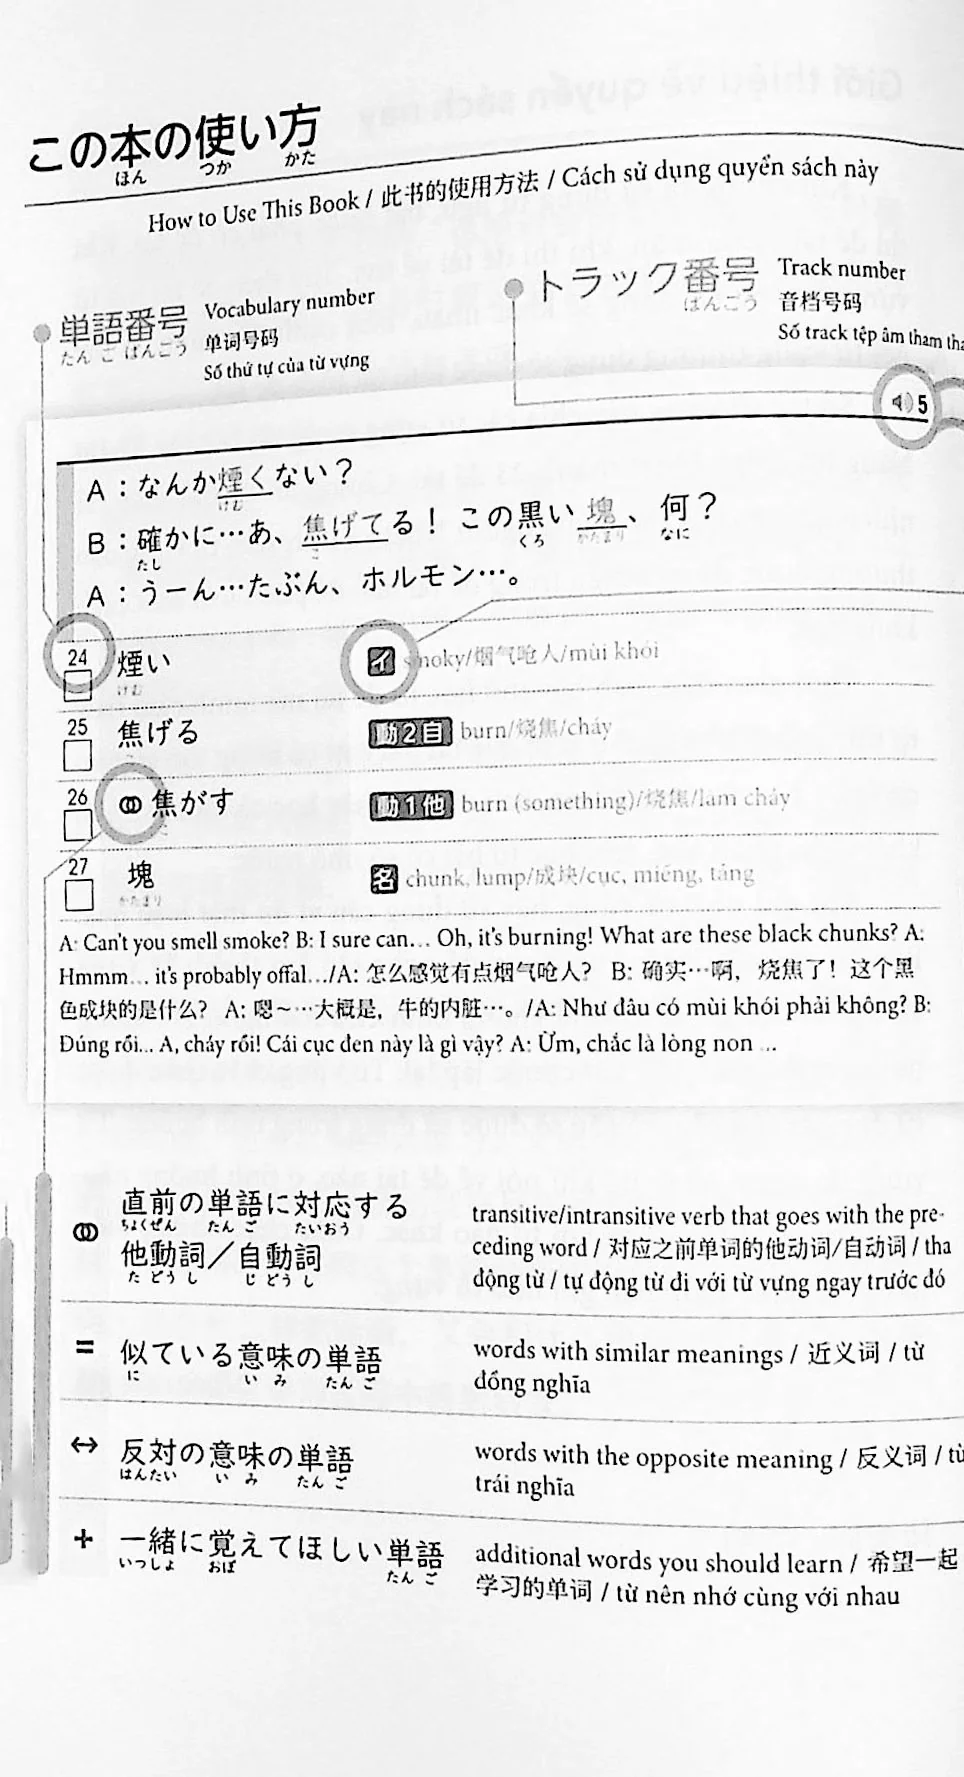 この本の使い方
ほん つか かた
How to Use This Book / 此书的使用方法 / Cách sử dụng quyển sách này
単語番号
たんごばんごう
Vocabulary number
单词号码
Số thứ tự của từ vựng
トラック番号
ばんごう
Track number
音档号码
Số track tệp âm tham
5
A：なんか煙くない？
けむ
B：確かに…あ、焦げてる！ この黒い塊、何？
たし こ くろ かたまり なに
A：うーん…たぶん、ホルモン…。
24 煙い イ smoky/烟气呛人/mùi khói
けむ
25 焦げる 動2自 burn/烧焦/cháy
26 焦がす 動1他 burn (something)/烧焦/làm cháy
27 塊 名 chunk, lump/成块/cục, miếng, tảng
かたまり
A: Can't you smell smoke? B: I sure can… Oh, it's burning! What are these black chunks? A:
Hmmm… it's probably offal…/A: 怎么感觉有点烟气呛人? B: 确实…啊，烧焦了！这个黑
色成块的是什么? A: 嗯~…大概是，牛的内脏…。/A: Như đâu có mùi khói phải không? B:
Đúng rồi... A, cháy rồi! Cái cục đen này là gì vậy? A: Ừm, chắc là lòng non ...
直前の単語に対応する
ちょくぜん たんご たいおう
他動詞／自動詞
たどうし じどうし
transitive/intransitive verb that goes with the pre-
ceding word / 对应之前单词的他动词/自动词 / tha
động từ / tự động từ đi với từ vựng ngay trước đó
= 似ている意味の単語
に いみ たんご
words with similar meanings / 近义词 / từ
đồng nghĩa
↔ 反対の意味の単語
はんたい いみ たんご
words with the opposite meaning / 反义词 / từ
trái nghĩa
+ 一緒に覚えてほしい単語
いっしょ おぼ たんご
additional words you should learn / 希望一起
学习的单词 / từ nên nhớ cùng với nhau